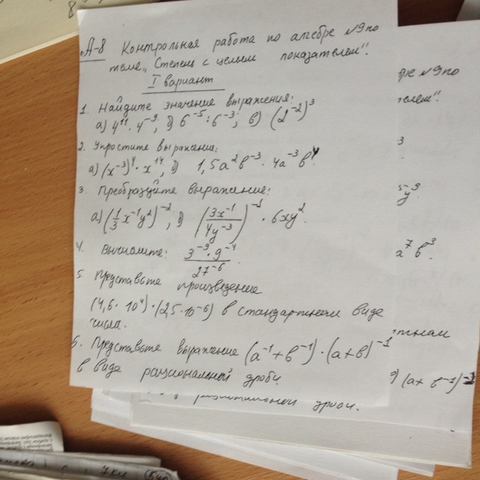 А-8 Контрольная работа по алгебре №9 по
теме „Степень с целым показателем".
I вариант
1. Найдите значение выражения:
а) 4¹¹ · 4⁻⁹; б) 6⁻⁵ : 6⁻³; в) (2⁻²)³
2. Упростите выражение:
а) (x⁻³)⁴ · x¹⁴; б) 1,5a²b⁻³ · 4a⁻³b⁴
3. Преобразуйте выражение:
а) (1/3 x⁻¹y²)⁻²; б) (3x⁻¹/4y⁻³)⁻¹ · 6xy²
4. Вычислите: 3⁻⁹ · 9⁻⁴ / 27⁻⁶
5. Представьте произведение
(4,6 · 10⁴) · (2,5 · 10⁻⁶) в стандартном виде
числа.
6. Представьте выражение (a⁻¹ + b⁻¹) · (a + b)⁻¹
в виде рациональной дроби.
№9 по
a⁷b³.
(a + b⁻¹)⁻²
дроби.